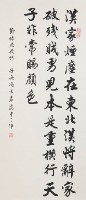 漢家煙塵在東北漢將辭家
破殘賊男兒本是重橫行天
子非常賜顏色